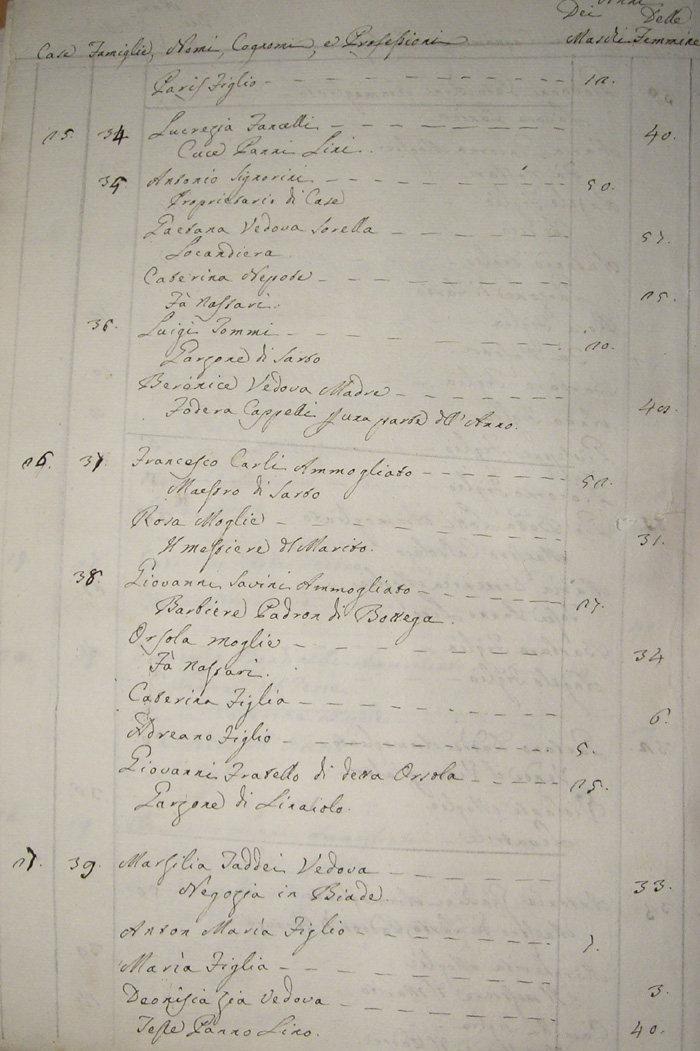 Anni
Dei Delle
Case Famiglie, Nomi, Cognomi, e Professioni Maschi Femmine
Paris Figlio 12.
25. 34 Lucrezia Fanelli 40.
Cuce Panni Lini.
35 Antonio Signorini 50.
Proprietario di Case
Gaetana Vedova Sorella 57.
Locandiera.
Caterina Nepote 25.
Fà Nastari.
36. Luigi Tommi 20.
Garzone di Sarto
Berenice Vedova Madre 42.
Fodera Cappelli una parte dell'Anno.
26. 37 Francesco Carli Ammogliato 52.
Maestro di Sarto
Rosa Moglie 31.
Il mestiere del Marito.
38 Giovanni Savini Ammogliato 27.
Barbiere Padron di Bottega.
Orsola moglie 34
Fà Nastari.
Caterina Figlia 6.
Adreano Figlio 5.
Giovanni Fratello di detta Orsola 25.
Garzone di Linaiolo.
27. 39 Marsilia Taddei Vedova 33.
Negozia in Biade.
Anton Maria Figlio 7.
Maria Figlia 3.
Deonisia zia vedova 40.
Tesse Panno Lino.